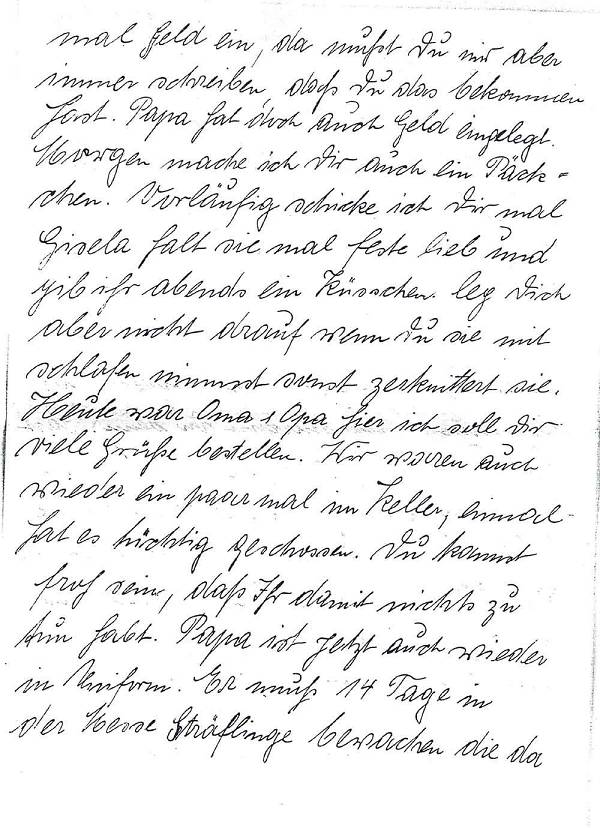 mal Geld ein, da mußt Du mir aber
immer schreiben, daß Du das bekommen
hast. Papa hat doch auch Geld eingelegt.
Morgen mache ich Dir auch ein Päck-
chen. Vorläufig schicke ich Dir mal
Gisela halt sie mal feste lieb und
gib ihr abends ein Küsschen. leg Dich
aber nicht drauf wenn Du sie mit
schlafen nimmst sonst zerknittert sie.
Heute war Oma & Opa hier ich soll Dir
viele Grüße bestellen. Wir waren auch
wieder ein paar mal im Keller, einmal
hat es tüchtig geschossen. Du kannst
froh sein, daß Ihr damit nichts zu
tun habt. Papa ist jetzt auch wieder
in Uniform. Er muß 14 Tage in
der Messe Sträflinge bewachen die da